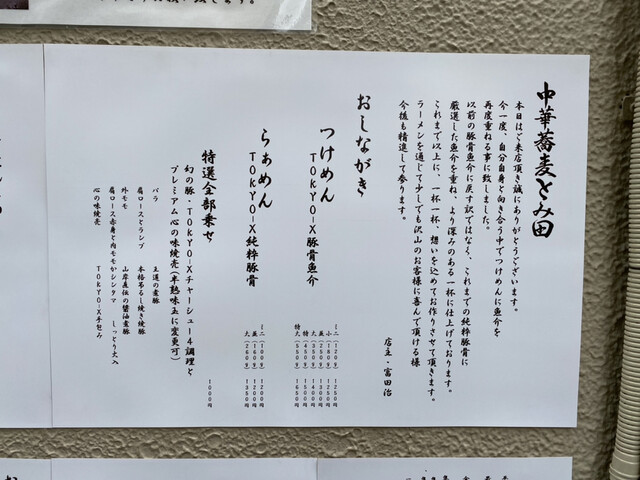 中華蕎麦とみ田
本日はご来店頂き誠にありがとうございます。
今一度、自分自身と向き合う中でつけめんに魚介を
再度重ねる事に致しました。
以前の豚骨魚介に戻す訳ではなく、これまでの純粋豚骨に
厳選した魚介を重ね、より深みのある一杯に仕上げております。
これまで以上に、一杯一杯、想いを込めてお作りさせて頂きます。
ラーメンを通じて少しでも沢山のお客様に喜んで頂ける様
今後も精進して参ります。
店主・富田治
おしながき
つけめん
TOKYO-X豚骨魚介
ミニ(120g) 1250円
小(180g) 1250円
並(250g) 1300円
大(350g) 1400円
特(450g) 1500円
特大(550g) 1650円
らぁめん
TOKYO-X純粋豚骨
ミニ(100g) 1200円
並(160g) 1200円
大(260g) 1350円
特選全部乗せ
幻の豚・TOKYO-Xチャーシュー4調理と
プレミアム心の味焼売(半熟味玉に変更可)
1000円
バラ 王道の煮豚
肩ロースとランプ 本格吊るし焼き焼豚
外モモ 山岸直伝の醤油煮豚
肩ロース赤身と内モモかシンタマ しっとり火入
心の味焼売 TOKYO-X手包み